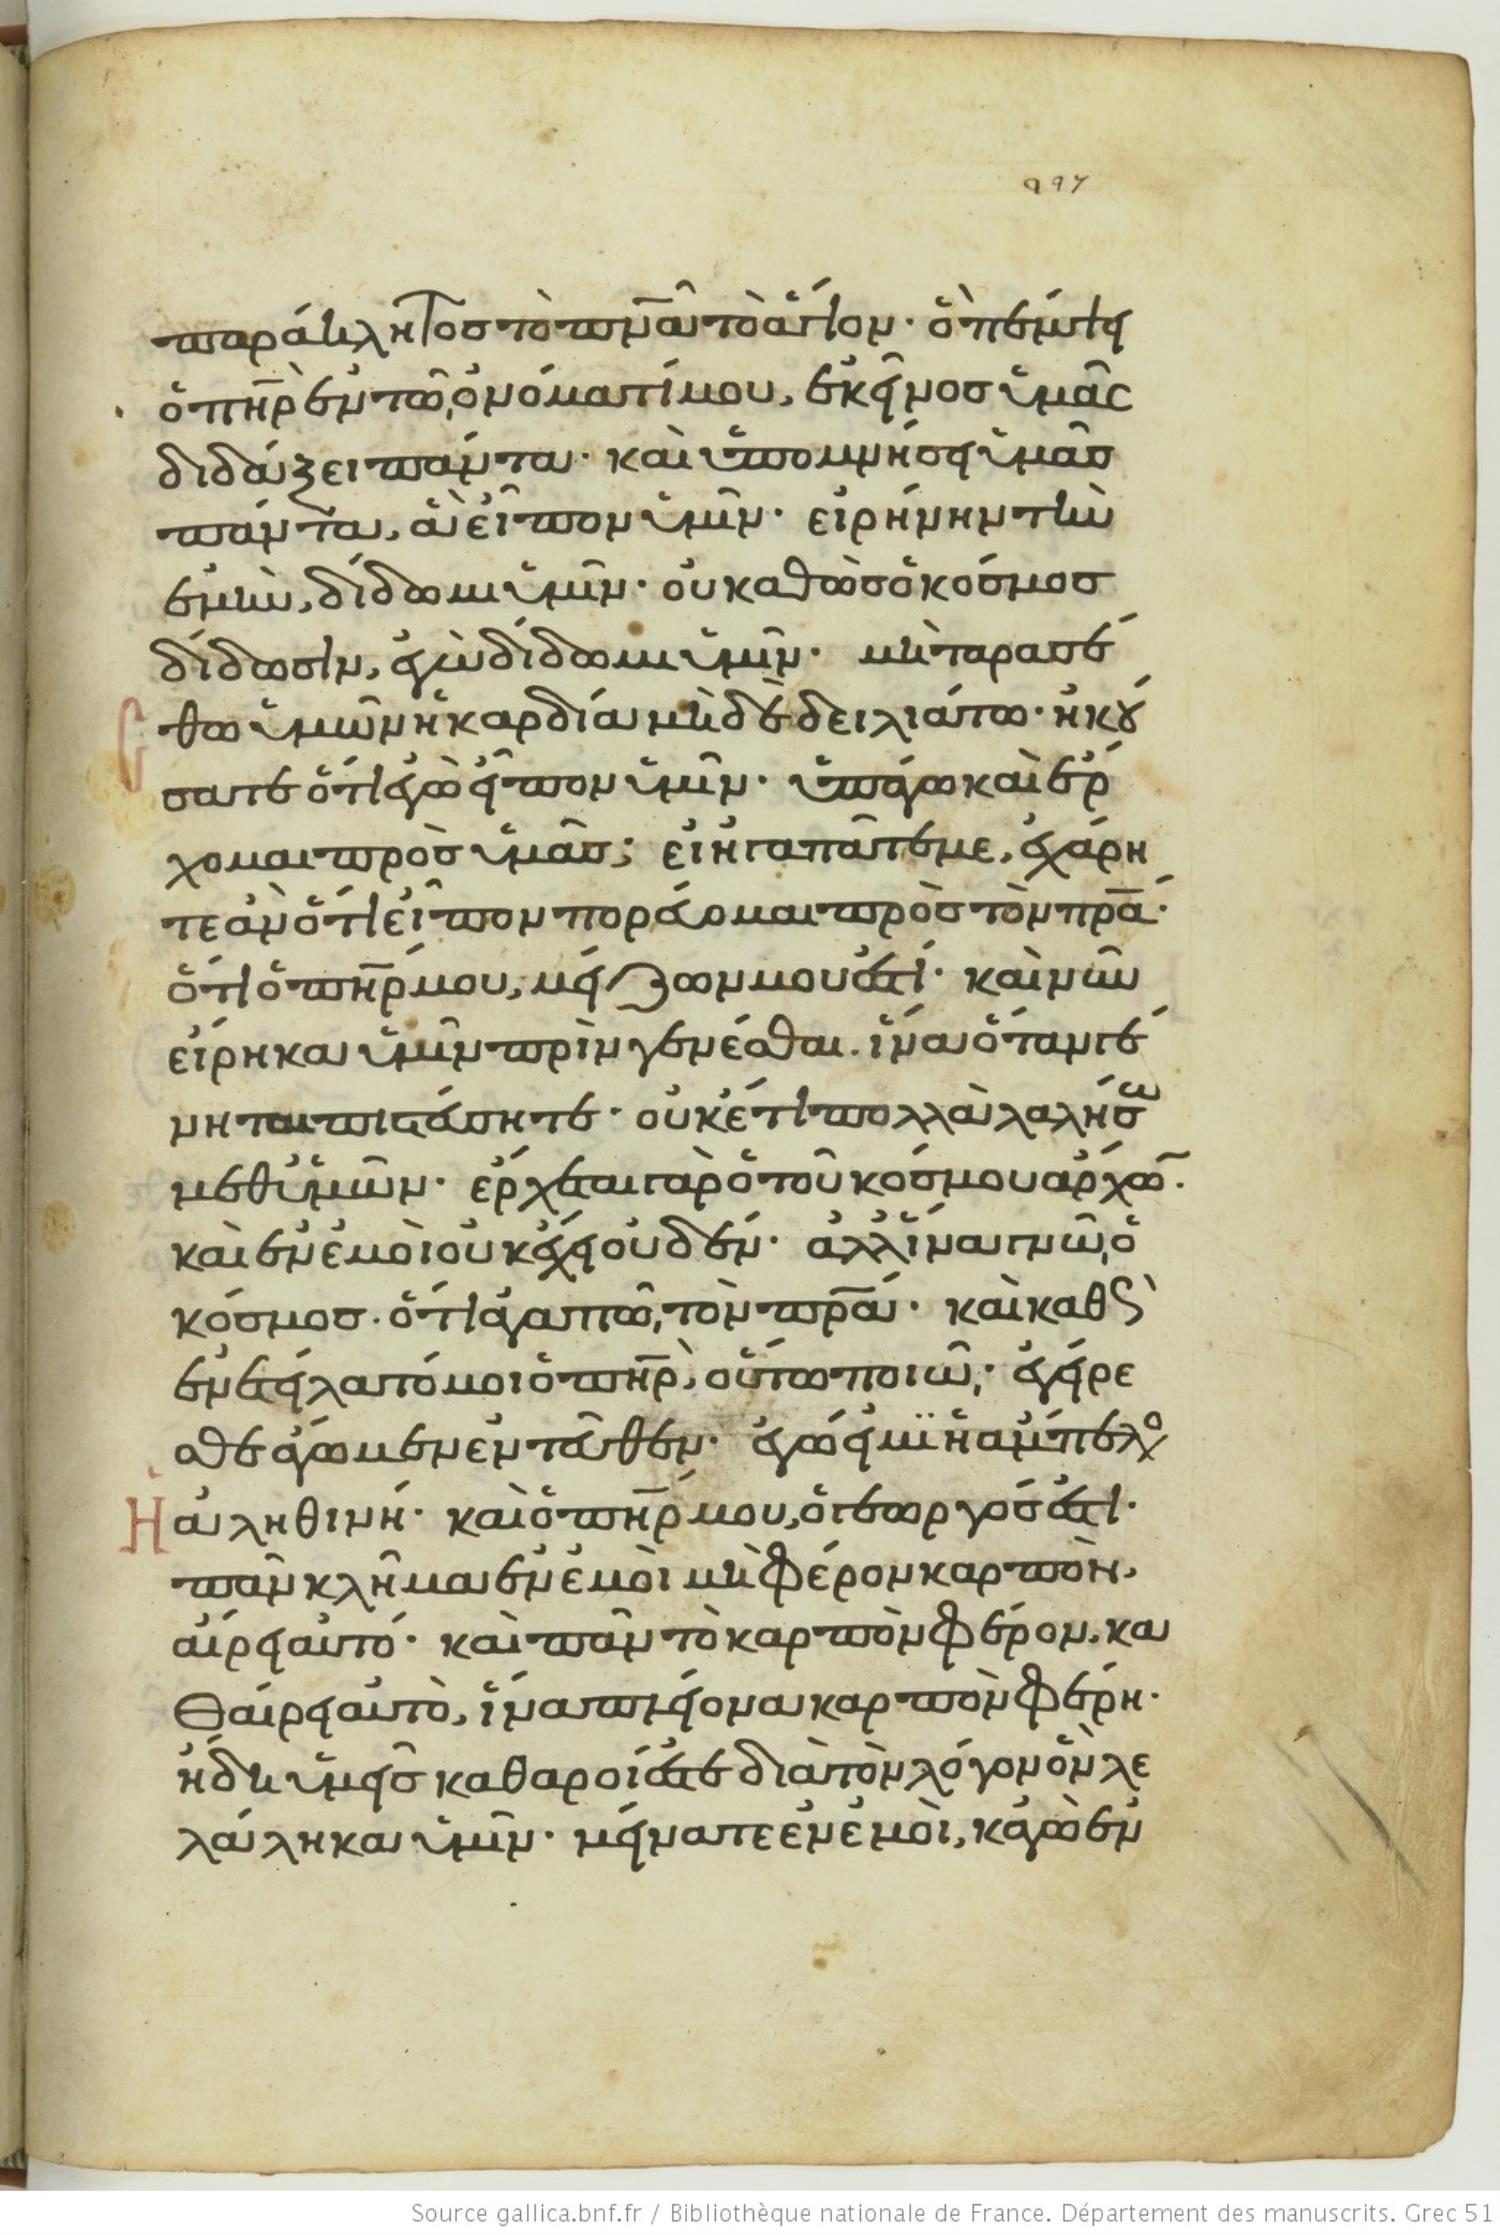 997
παράκλητος τὸ πν̅α τὸ ἅγιον· ὃ πέμψει
ὁ πη̅ρ ἐν τῶ ὀνόματί μου, ἐκεῖνος ὑμᾶς
διδάξει πάντα· καὶ ὑπομνήσει ὑμᾶς
πάντα, ἃ εἶπον ὑμῖν· εἰρήνην τὴν
ἐμὴν, δίδωμι ὑμῖν· οὐ καθὼς ὁ κόσμος
δίδωσιν, ἐγὼ δίδωμι ὑμῖν· μὴ ταρασσέ
σθω ὑμῶν ἡ καρδία μὴ δὲ δειλιάτω· ἠκού
σατε ὅτι ἐγὼ εἶπον ὑμῖν· ὑπάγω καὶ ἔρ
χομαι πρὸς ὑμᾶς; εἰ ἠγαπᾶτέ με, ἐχάρη
τε ἂν ὅτι εἶπον πορεύομαι πρὸς τὸν πρ̅α·
ὅτι ὁ πη̅ρ μου, μείζων μου ἐστί· καὶ νῦν
εἴρηκα ὑμῖν πρὶν γενέσθαι. ἵνα ὅταν γέ
νηται πιστεύσητε· οὐκέτι πολλὰ λαλήσω
μεθ ὑμῶν· ἔρχεται γὰρ ὁ τοῦ κόσμου ἄρχων.
καὶ ἐν ἐμοὶ οὐκ ἔχει οὐδέν· ἀλλ ἵνα γνῶ ὁ
κόσμος. ὅτι ἀγαπῶ τὸν πρ̅α· καὶ καθὼς
ἐνετείλατό μοι ὁ πη̅ρ, οὕτω ποιῶ· ἐγείρε
σθε ἄγωμεν ἐντεῦθεν· ἐγώ εἰμϊ ἡ ἄμπελος
Ἡ ἀληθινή· καὶ ὁ πη̅ρ μου, ὁ γεωργός ἐστι·
πᾶν κλῆμα ἐν ἐμοὶ μὴ φέρον καρπὸν,
αἴρει αὐτό· καὶ πᾶν τὸ καρπὸν φέρον, κα
θαίρει αὐτὸ, ἵνα πλείονα καρπὸν φέρη·
ἤδη ὑμεῖς καθαροί ἐστε διὰ τὸν λόγον ὃν λε
λάληκα ὑμῖν· μείνατε ἐν ἐμοὶ, κἀγὼ ἐν
Source gallica.bnf.fr / Bibliothèque nationale de France. Département des manuscrits. Grec 51